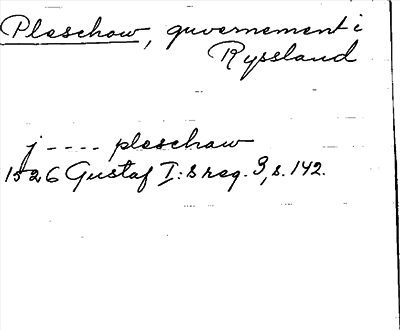 Pleschow, guvernement i
Ryssland
j ---- pleschaw
1526 Gustaf I:s reg. 3, s. 142.